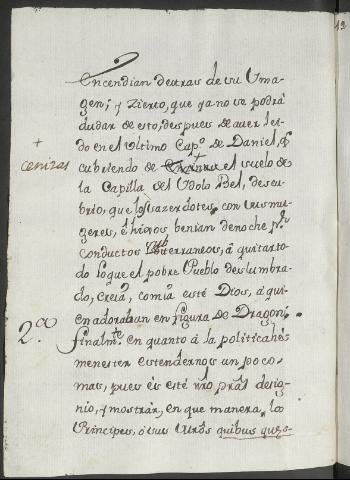 Encendian detras de su Yma-
gen; y zierto, que ya no se podrá
dudar de esto, despues de aver lei-
do en el ultimo Capº. de Daniel, q̃
+
cenizas
cubriendo de el suelo de
la Capilla del Ydolo Bel, descu-
brio, que los sazerdotes, con sus mu-
geres, è hijos benian de noche pr.
conductos subterraneos, â quitar to-
do lo que el pobre Pueblo deslumbra-
do, creia, comia esté Dios, â qui-
en adoraban en figura de Dragon;
2.º
finalmte. en quanto â la politica hés
menester estendernos un poco
mas, pues és esté nrô prâl desig-
nio, y mostrár, en que manera, los
Principes, ô sus Minrôs quibus quæ-